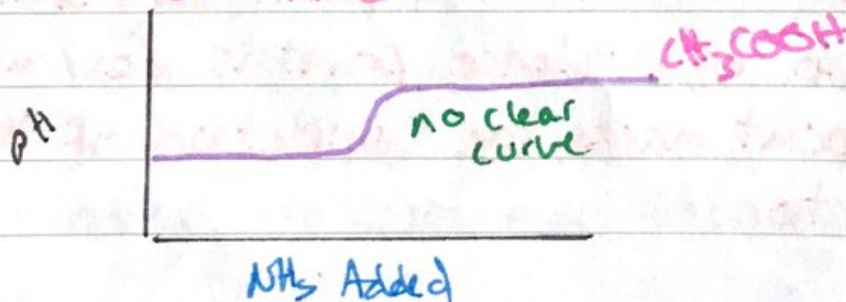 CH₃COOH
pH
no clear
curve
NH₃ Added